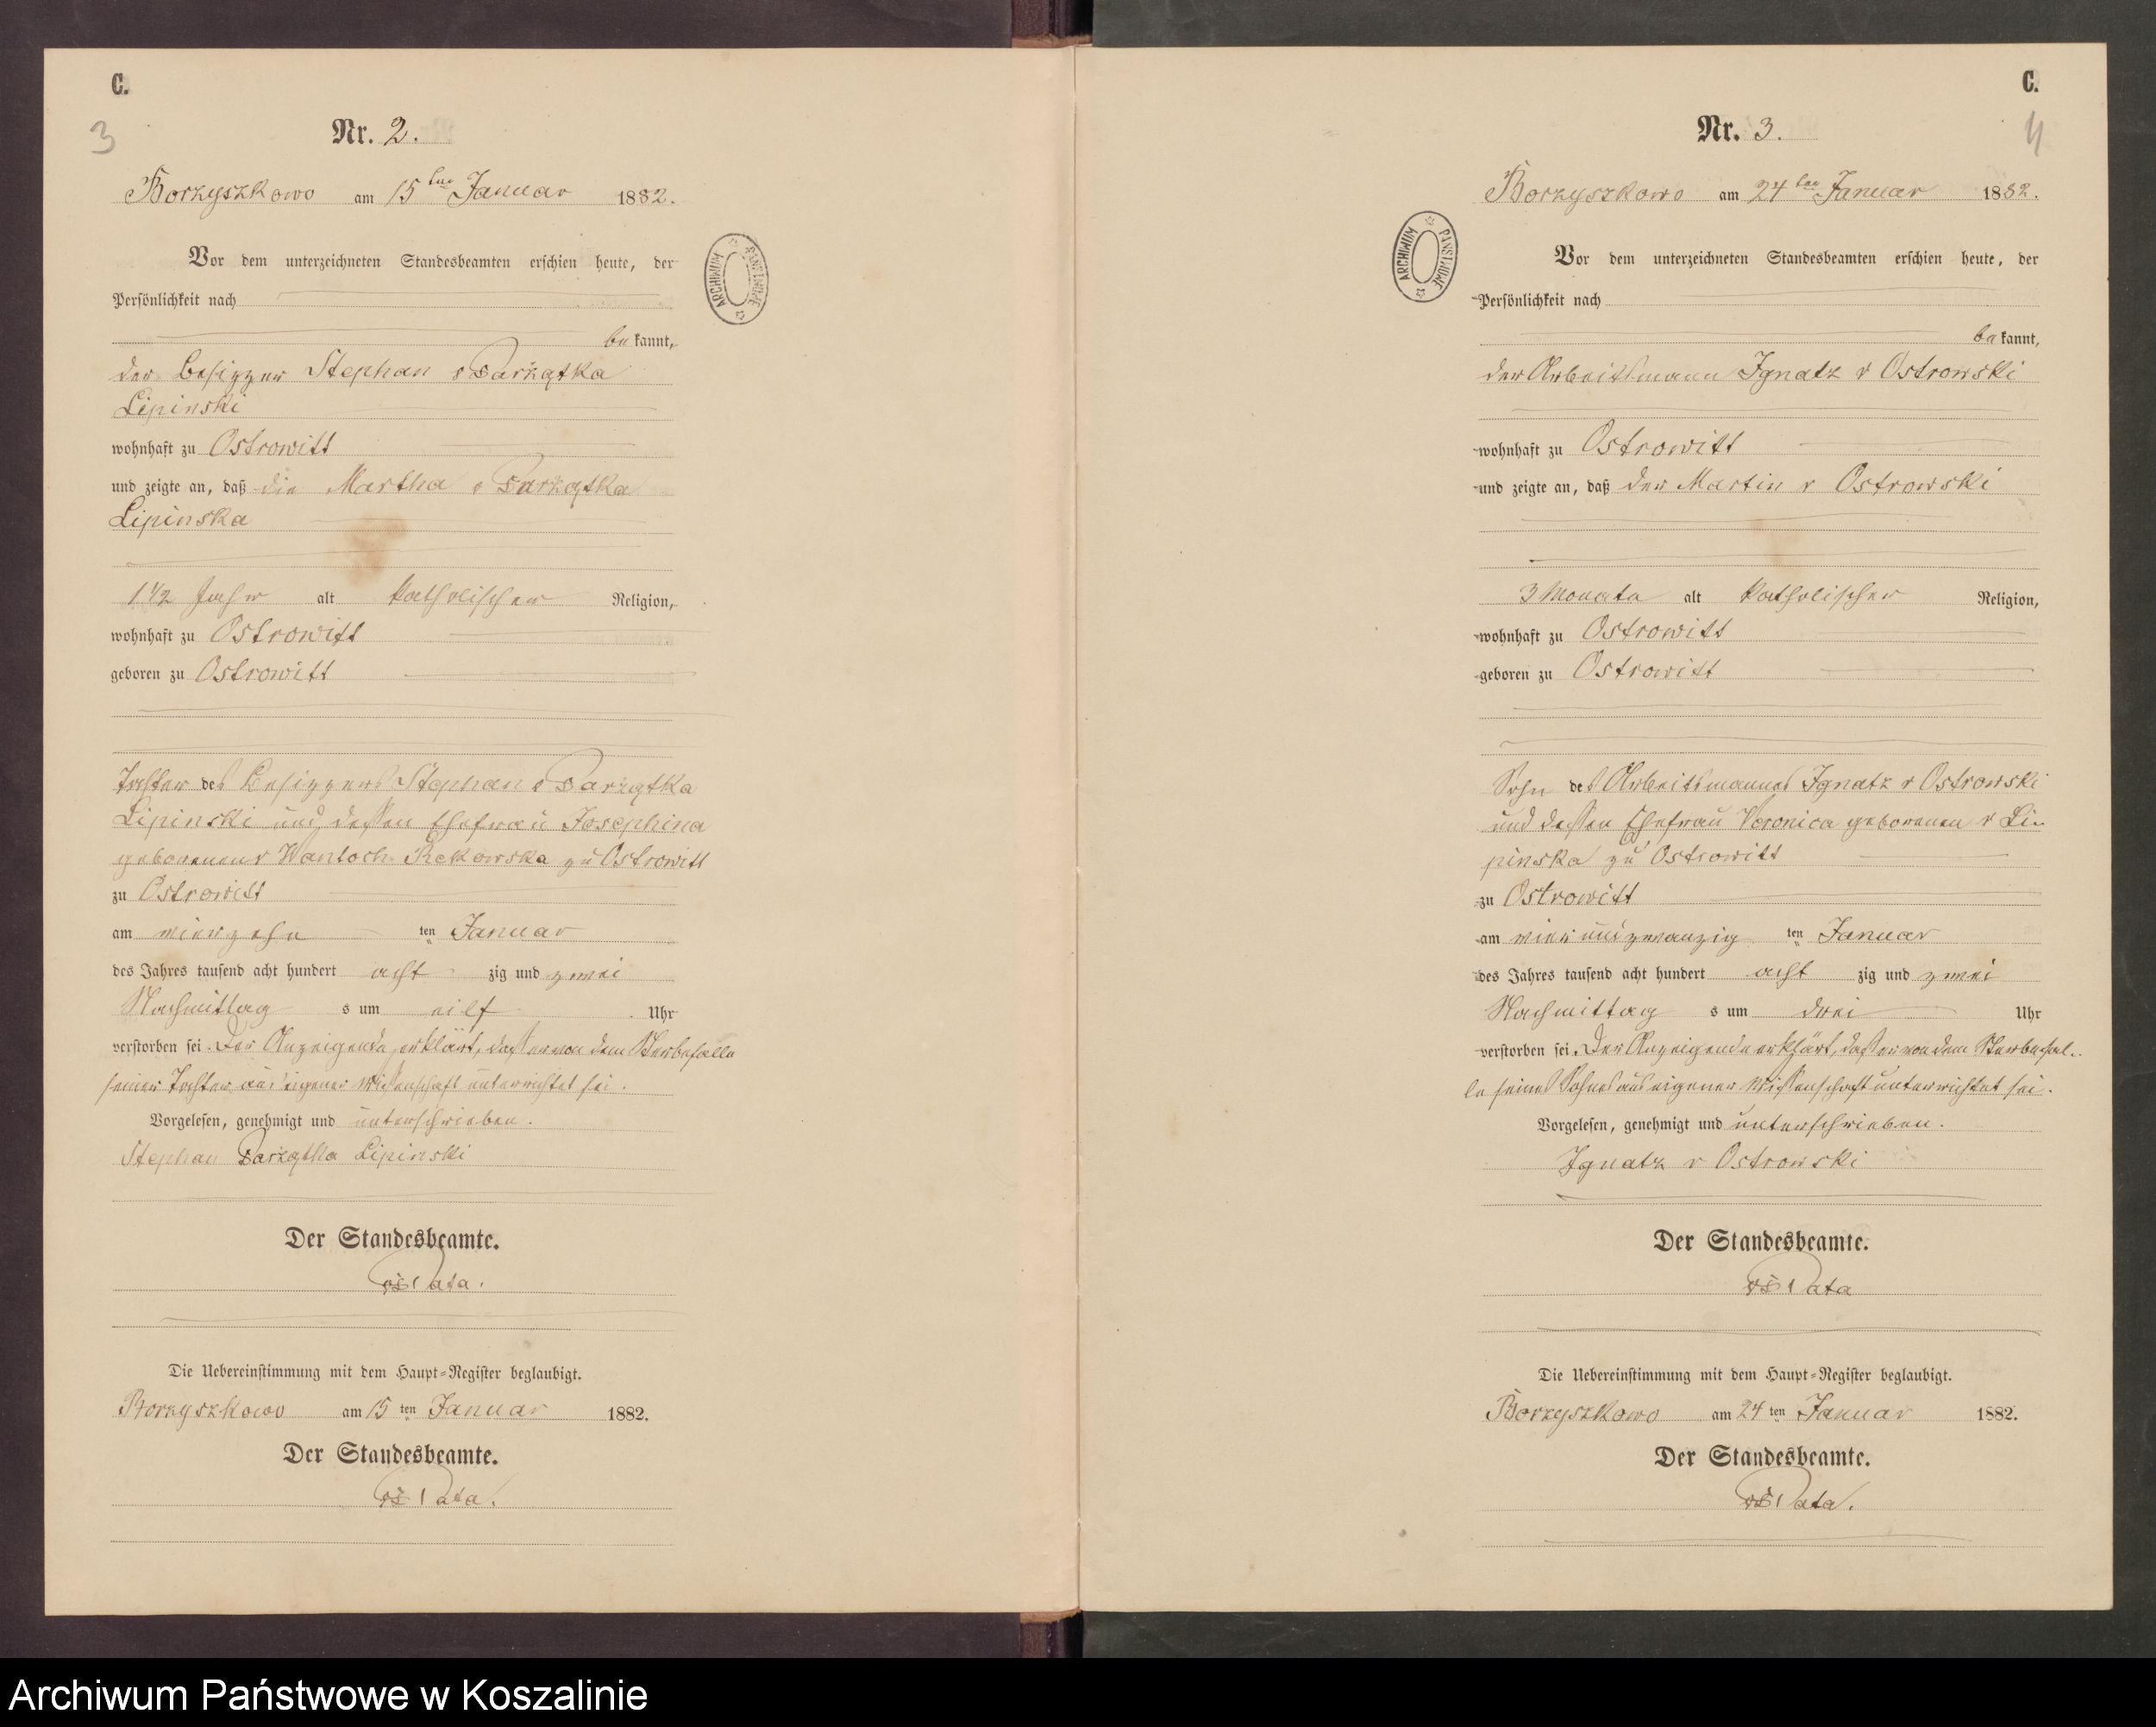 C.
3
Nr. 2.
Borzyszkowo am 15ten Januar 1882.
Vor dem unterzeichneten Standesbeamten erschien heute, der
Persönlichkeit nach
bekannt,
der Besitzer Stephan v
Lipinski
wohnhaft zu Ostrowitt
und zeigte an, daß die Martha v
Lipinska
1 1/2 Jahr alt katholischer Religion,
wohnhaft zu Ostrowitt
geboren zu Ostrowitt
Tochter des Besitzers Stephan v
Lipinski und dessen Ehefrau Josephina
geborenen v Wantoch Rekowska zu Ostrowitt
zu Ostrowitt
am vierzehn ten Januar
des Jahres tausend acht hundert acht zig und zwei
Nachmittag s um eilf Uhr
verstorben sei. Der Anzeigende erklärt, daß er von dem Sterbefalle
seiner Tochter aus eigener Wissenschaft unterrichtet sei.
Vorgelesen, genehmigt und unterschrieben.
Stephan Lipinski
Der Standesbeamte.
Die Uebereinstimmung mit dem Haupt-Register beglaubigt.
Borzyszkowo am 15 ten Januar 1882.
Der Standesbeamte.
ARCHIWUM PAŃSTWOWE
C.
4
Nr. 3.
Borzyszkowo am 24ten Januar 1882.
Vor dem unterzeichneten Standesbeamten erschien heute, der
Persönlichkeit nach
bekannt,
der Arbeitsmann Ignatz v Ostrowski
wohnhaft zu Ostrowitt
und zeigte an, daß der Martin v Ostrowski
3 Monate alt katholischer Religion,
wohnhaft zu Ostrowitt
geboren zu Ostrowitt
Sohn des Arbeitsmannes Ignatz v Ostrowski
und dessen Ehefrau Veronica geborenen v Li-
pinska zu Ostrowitt
zu Ostrowitt
am vier und zwanzig ten Januar
des Jahres tausend acht hundert acht zig und zwei
Nachmittag s um drei Uhr
verstorben sei. Der Anzeigende erklärt, daß er von dem Sterbefal-
le seines Sohnes aus eigener Wissenschaft unterrichtet sei.
Vorgelesen, genehmigt und unterschrieben.
Ignatz v Ostrowski
Der Standesbeamte.
Die Uebereinstimmung mit dem Haupt-Register beglaubigt.
Borzyszkowo am 24 ten Januar 1882.
Der Standesbeamte.
ARCHIWUM PAŃSTWOWE
Archiwum Państwowe w Koszalinie